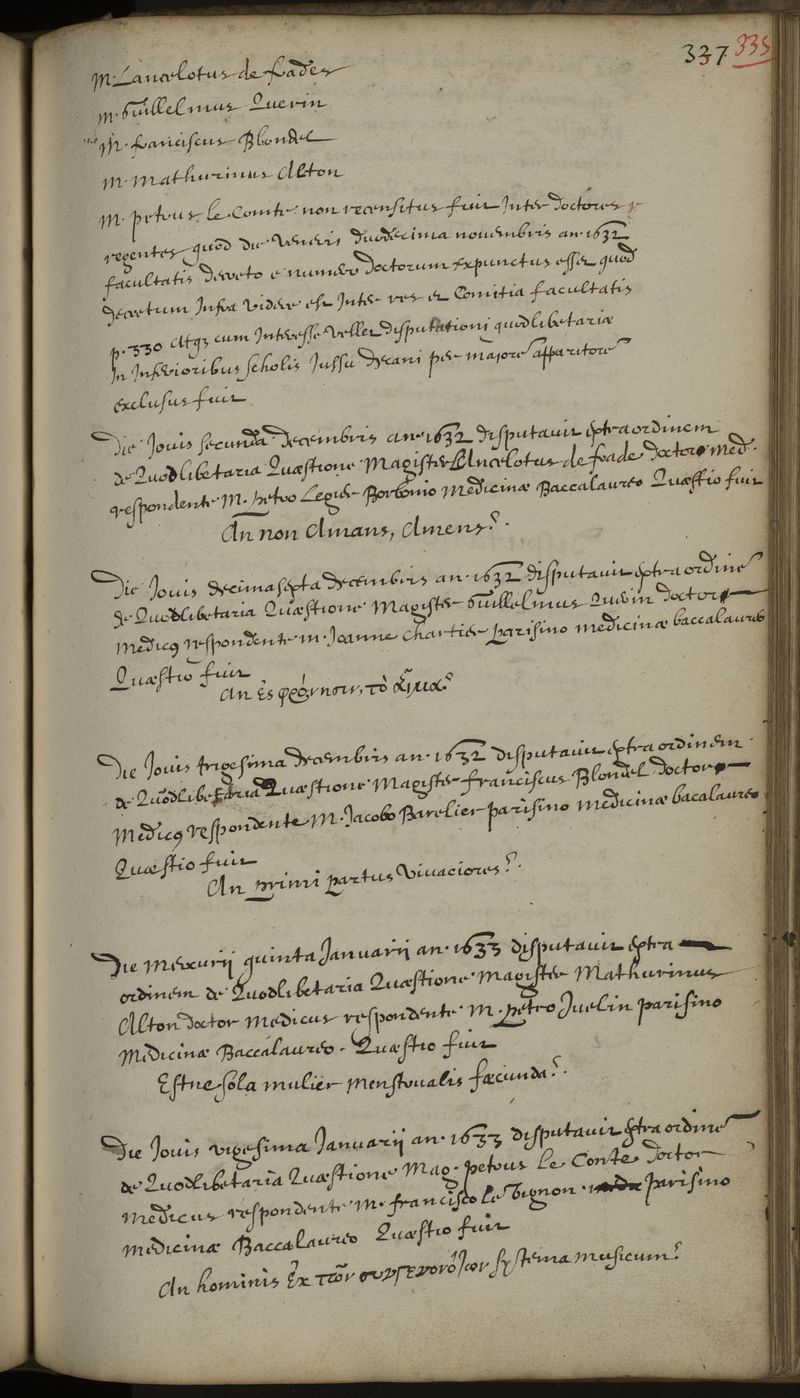 337 335
M. Lancelotus de frades
M. Guillelmus Querin
M. franciscus Blondel
M. Mathurinus Alton
M. petrus le Comte non recensitus fuit Inter doctores
regentes quod die veneris duodecima novembris an. 1632
facultatis decreto e numero doctorum expunctus esset quod
decretum Infra videre est Inter res et Comitia facultatis
p. 330 Atq3 cum Interesse vellet disputationi quodlibetariæ
In Inferioribus scholis Iussu decani per majorē apparitorē
exclusus fuit.
Die Jovis secunda decembris an. 1632 disputavit extraordinem
de Quodlibetaria Quæstione Magister Lancelotus de frade doctor med.
respondente M. petro Legier Borbonio Medicinæ Baccalaureo Quæstio fuit
An non Amans, Amens?.
Die Jovis decimasexta decembris an. 1632 disputavit extraordinē
de Quodlibetaria Quæstione Magister Guillelmus Querin doctor
medicq respondente M. Joanne Chartier parisino medicinæ baccalaureo
Quæstio fuit
An ἐς φρόνησιν, τὸ αἷμα?
Die Jovis trigesima decembris an. 1632 disputavit extraordinem
de Quodlibetaria Quæstione Magister franciscus Blondel doctor
Medicq respondente M. Jacobo Barelier parisino medicinæ bacalaureo
Quæstio fuit
An primi partus vivaciores?.
Die Mercurij quinta Januarij an. 1633 disputavit extra
ordinem de Quodlibetaria Quæstione Magister Mathurinus
Alton doctor Medicus respondente M. petro Juelin parisino
Medicinæ Baccalaureo. Quæstio fuit
Estne sola mulier menstrualis fæcunda?.
Die Jovis vigesima Januarij an. 1633 disputavit extraordinē
de Quodlibetaria Quæstione Mag. petrus le Conte doctor
Medicus respondente M. francisco le Vignon parisino
medicinæ Baccalaureo Quæstio fuit
An hominis Ex systema musicum?